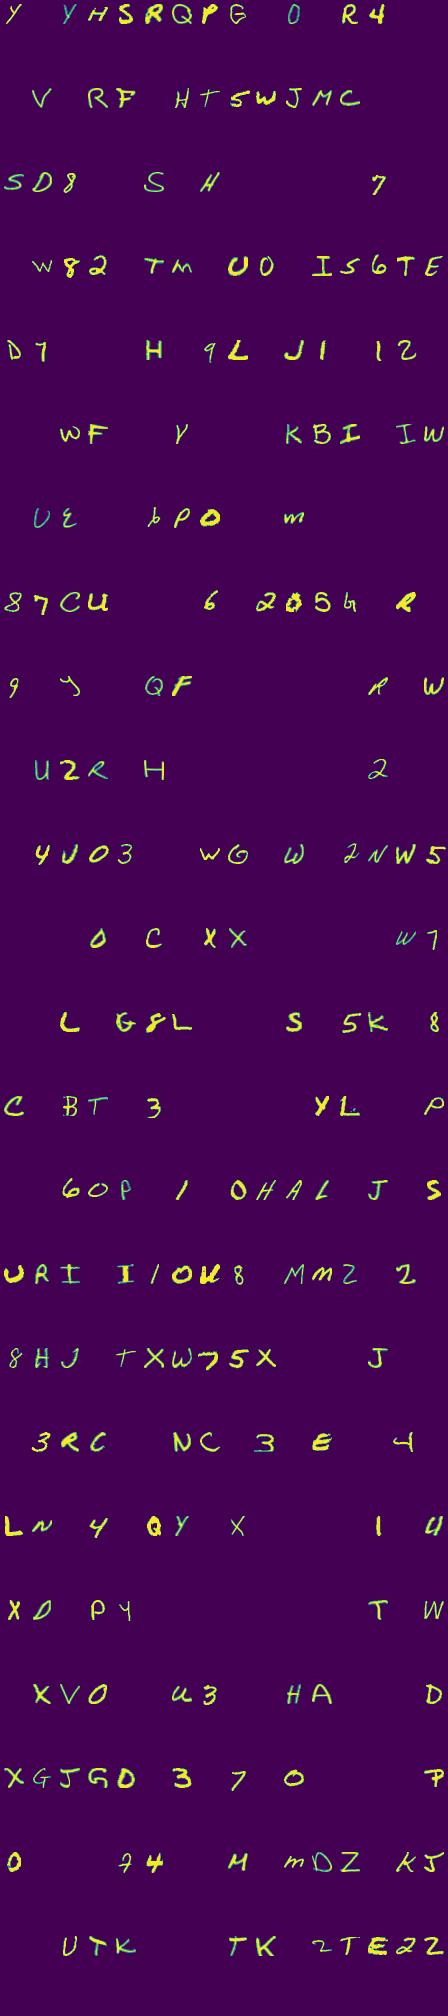 Y YHSRQPG 0 R4
V RF HT5WJMC
SD8 S H 7
W82 TM U0 IS6TE
D7 H 9L J1 12
WF Y KBI IW
UE 6PO M
87CU 6 205G R
9 Y QF R W
U2R H 2
4J03 WG W 2NW5
0 C XX W7
L G8L S 5K 8
C BT 3 YL P
60P 1 0HAL J S
URI I10U8 MMZ 2
8HJ TXW75X J
3RC NC 3 E 4
LN 4 QY X 1 U
XD P4 T W
XV0 U3 HA D
XGJGD 3 7 0 P
0 74 M MDZ KJ
UTK TK 2TE22